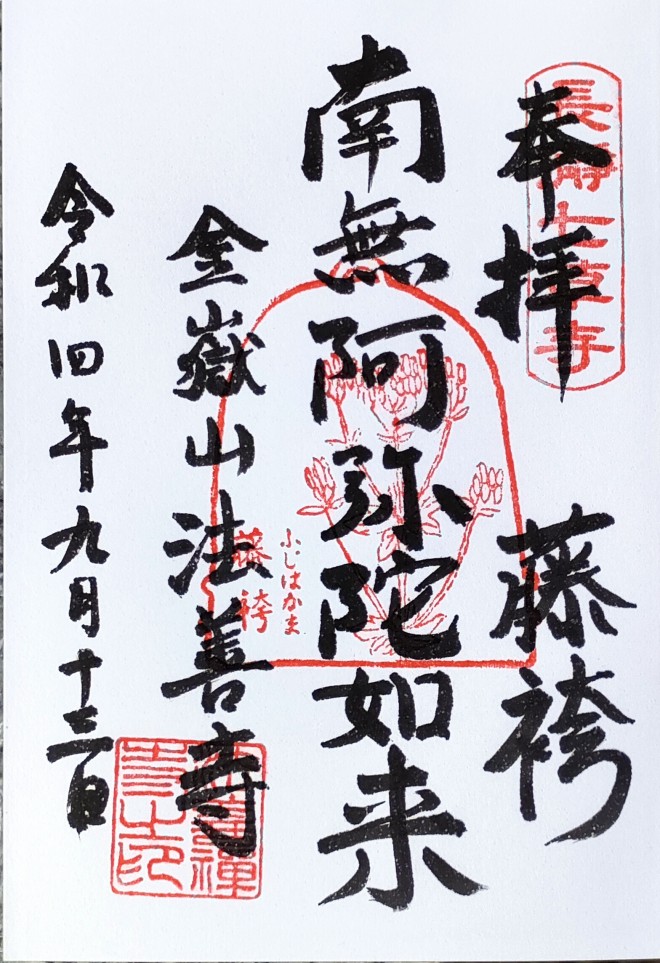 奉拝
長瀞七草寺
藤袴
南無阿弥陀如来
ふじはかま
藤袴
金嶽山法善寺
令和四年九月十三日